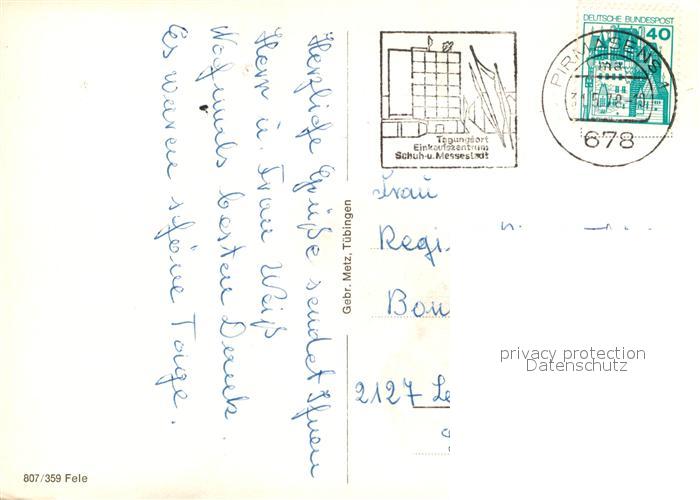 DEUTSCHE BUNDESPOST
40
PIRMASENS 1
678
Tagungsort
Einkaufszentrum
Schuh-u. Messestadt
Herzliche Grüße sendet Ihnen
Herr u. Frau Weiß
Nochmals besten Dank.
Es waren schöne Tage.
Gebr. Metz, Tübingen
Frau
Regi
Bon
2127 Le
privacy protection
Datenschutz
807/359 Fele